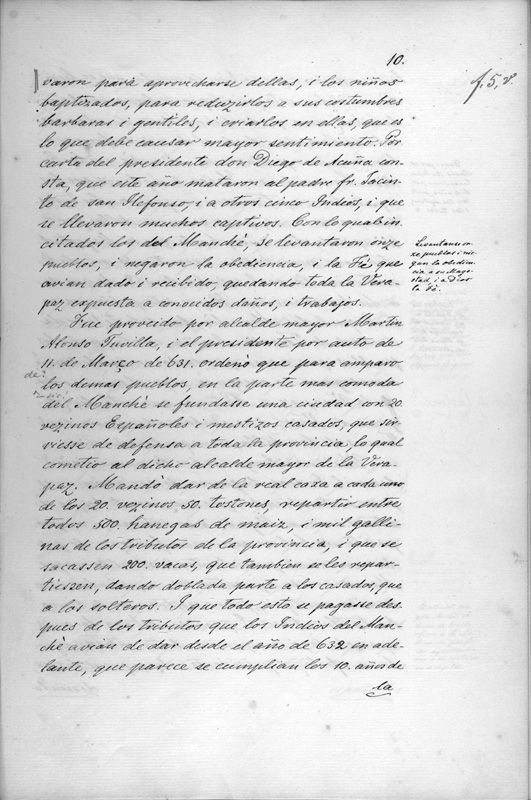 10.
f. 5, v.
varon para aprovecharse dellas, i los niños
baptizados, para reduzirlos a sus costumbres
barbaras i gentiles, i criarlos en ellas, que es
lo que debe causar mayor sentimiento. Por
carta del presidente don Diego de Acuña con-
sta, que este año mataron al padre fr. Jacin-
to de san Ilefonso, i a otros cinco Indios, i que
se llevaron muchos captivos. Con lo qual in-
citados los del Manchè, se levantaron onze
pueblos, i negaron la obediencia, i la Fè que
avian dado i recibido, quedando toda la Vera-
paz expuesta a conocidos daños, i trabajos.
Levantanse on-
ze pueblos i nie-
gan la obedien-
cia a su Mage-
stad, i a Dios
la Fè.
Fue proveido por alcalde mayor Martin
Alonso Tuvilla, i el presidente por auto de
11. de Março de 631. ordenò que para amparo
de
los demas pueblos, en la parte mas comoda
del Manchè se fundasse una ciudad con 20.
vezinos Españoles i mestizos casados, que sir-
viesse de defensa a toda la provincia, lo qual
cometio al dicho alcalde mayor de la Vera-
paz. Mandò dar de la real caxa a cada uno
de los 20. vezinos 50. tostones, repartir entre
todos 500. hanegas de maiz, i mil galli-
nas de los tributos de la provincia, i que se
sacassen 200. vacas, que tambien se les repar-
tiessen, dando doblada parte a los casados, que
a los solteros. I que todo esto se pagasse des-
pues de los tributos que los Indios del Man-
chè avian de dar desde el año de 632 en ade-
lante, que parece se cumplian los 10. años de
la